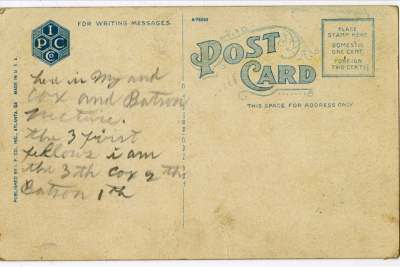 I
P C
Co
FOR WRITING MESSAGES
MADE IN U.S.A.
PUBLISHED BY I. P. CO., INC., ATLANTA, GA
her is my and
Cox and Batron
Picture.
the 3 first
fellows i am
the 3th Cox 2th
Batron 1th
POST
CARD
THIS SPACE FOR ADDRESS ONLY
PLACE
STAMP HERE
DOMESTIC
ONE CENT
FOREIGN
TWO CENTS